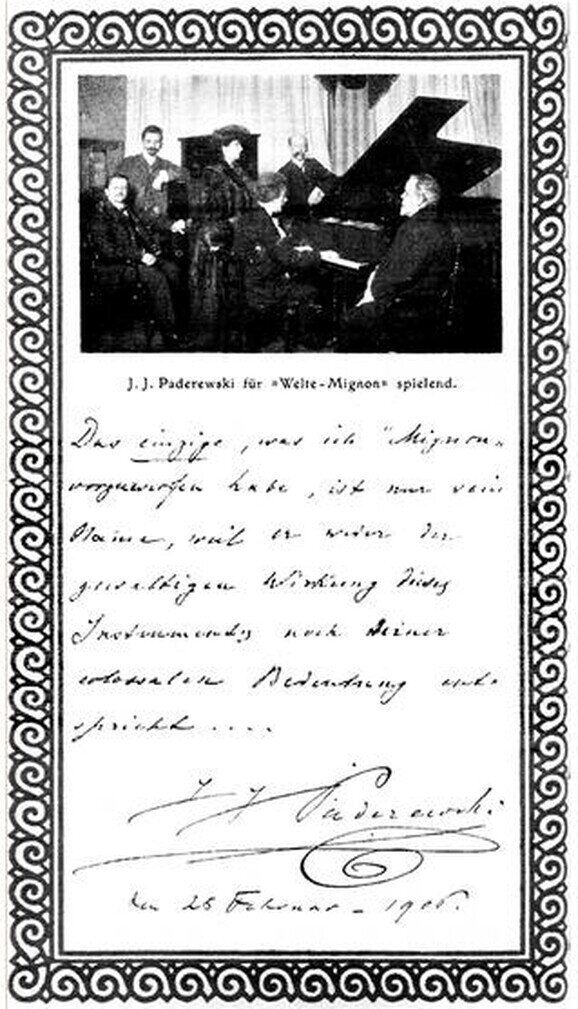 J. J. Paderewski für »Welte-Mignon« spielend.
Das einzige, was ich "Mignon"
vorzuwerfen habe, ist nur sein
Name, weil er weder der
gewaltigen Wirkung dieses
Instrumentes noch seiner
colossalen Bedeutung ent-
spricht ....
J J Paderewski
den 25 Februar – 1906.